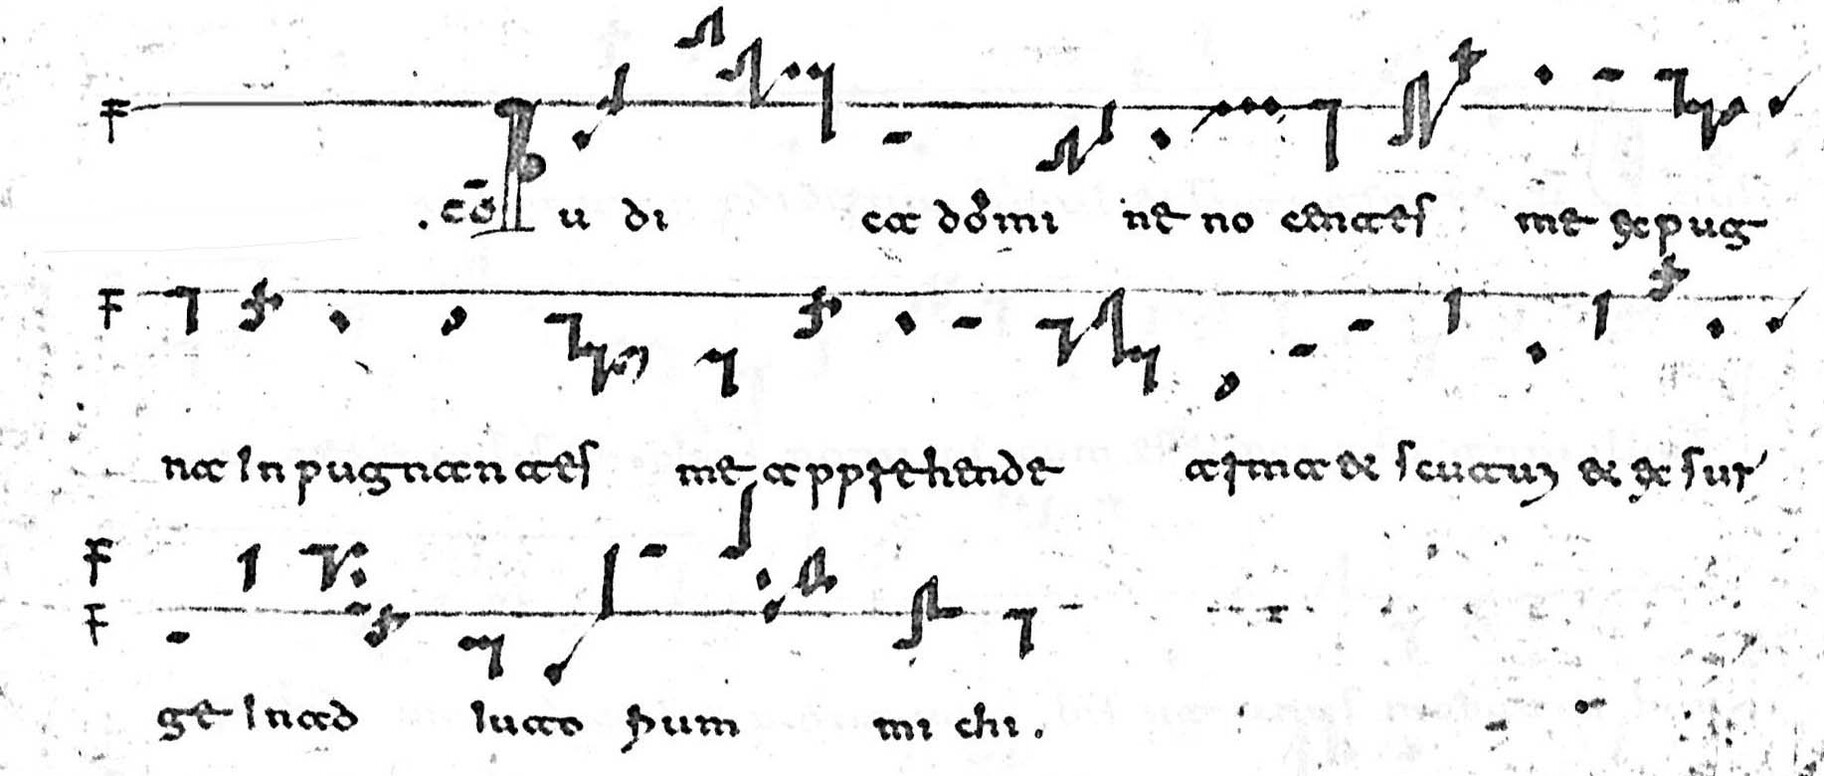 .cō Iu di ca dōmi ne no centes me expug
na Inpugnantes me apprehende arma et scutuʒ et exsur
ge Inad iuto rium mi chi.